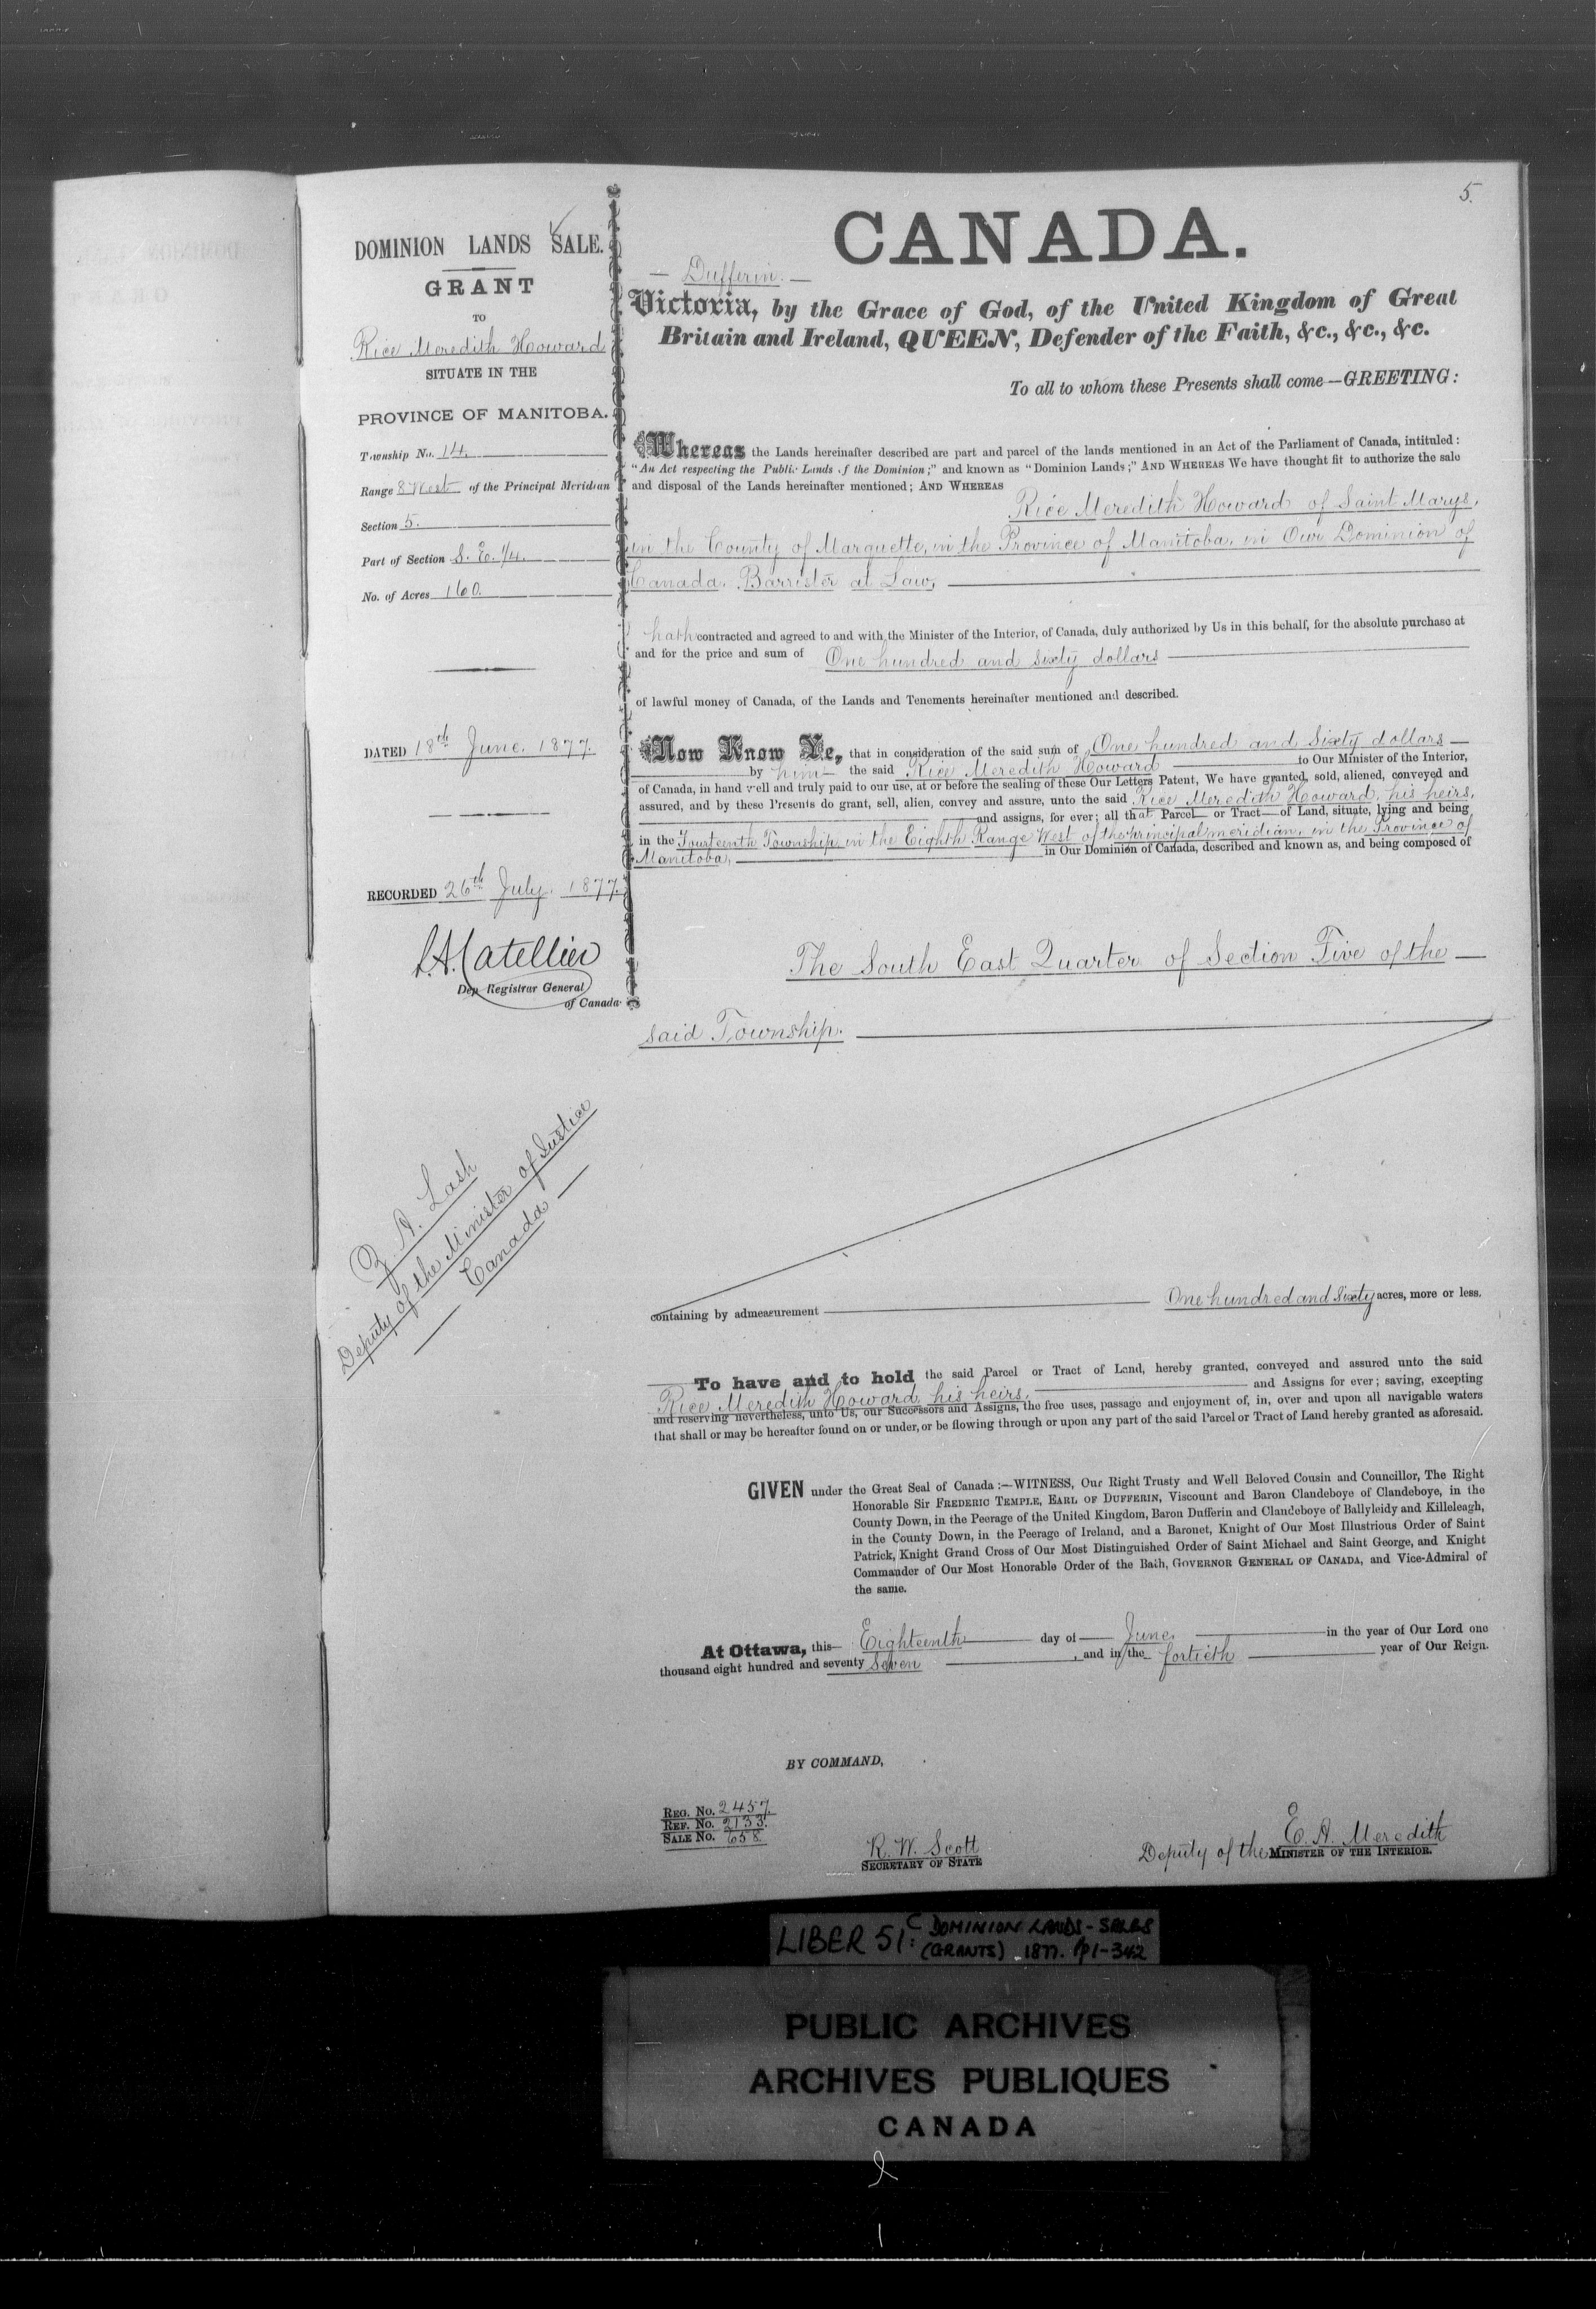 5.
DOMINION LANDS SALE.
GRANT
TO
Rice Meredith Howard
SITUATE IN THE
PROVINCE OF MANITOBA.
Township No. 14.
Range 8 West of the Principal Meridian
Section 5.
Part of Section S. E. 1/4.
No. of Acres 160.
DATED 18th June. 1877.
RECORDED 26th July. 1877.
L.A. Catellier
Dep Registrar General
of Canada
Z. A. Lash
Deputy of the Minister of Justice
Canada
CANADA.
Dufferin.
Victoria, by the Grace of God, of the United Kingdom of Great
Britain and Ireland, QUEEN, Defender of the Faith, &c., &c., &c.
To all to whom these Presents shall come—GREETING:
Whereas the Lands hereinafter described are part and parcel of the lands mentioned in an Act of the Parliament of Canada, intituled:
"An Act respecting the Public Lands of the Dominion;" and known as "Dominion Lands;" AND WHEREAS We have thought fit to authorize the sale
and disposal of the Lands hereinafter mentioned; AND WHEREAS
Rice Meredith Howard of Saint Marys,
in the County of Marquette, in the Province of Manitoba, in Our Dominion of
Canada, Barrister at Law,
hath contracted and agreed to and with the Minister of the Interior, of Canada, duly authorized by Us in this behalf, for the absolute purchase at
and for the price and sum of One hundred and Sixty dollars
of lawful money of Canada, of the Lands and Tenements hereinafter mentioned and described.
Now Know Ye, that in consideration of the said sum of One hundred and Sixty dollars
by him the said Rice Meredith Howard to Our Minister of the Interior,
of Canada, in hand well and truly paid to our use, at or before the sealing of these Our Letters Patent, We have granted, sold, aliened, conveyed and
assured, and by these Presents do grant, sell, alien, convey and assure, unto the said Rice Meredith Howard, his heirs,
and assigns, for ever; all that Parcel or Tract of Land, situate, lying and being
in the Fourteenth Township in the Eighth Range West of the principal meridian, in the Province of
Manitoba, in Our Dominion of Canada, described and known as, and being composed of
The South East Quarter of Section Five of the
said Township.
containing by admeasurement One hundred and Sixty acres, more or less.
To have and to hold the said Parcel or Tract of Land, hereby granted, conveyed and assured unto the said
Rice Meredith Howard, his heirs, and Assigns for ever; saving, excepting
and reserving nevertheless, unto Us, our Successors and Assigns, the free uses, passage and enjoyment of, in, over and upon all navigable waters
that shall or may be hereafter found on or under, or be flowing through or upon any part of the said Parcel or Tract of Land hereby granted as aforesaid.
GIVEN under the Great Seal of Canada:—WITNESS, Our Right Trusty and Well Beloved Cousin and Councillor, The Right
Honorable Sir FREDERIC TEMPLE, EARL OF DUFFERIN, Viscount and Baron Clandeboye of Clandeboye, in the
County Down, in the Peerage of the United Kingdom, Baron Dufferin and Clandeboye of Ballyleidy and Killeleagh,
in the County Down, in the Peerage of Ireland, and a Baronet, Knight of Our Most Illustrious Order of Saint
Patrick, Knight Grand Cross of Our Most Distinguished Order of Saint Michael and Saint George, and Knight
Commander of Our Most Honorable Order of the Bath, GOVERNOR GENERAL OF CANADA, and Vice-Admiral of
the same.
At Ottawa, this Eighteenth day of June, in the year of Our Lord one
thousand eight hundred and seventy Seven, and in the fortieth year of Our Reign.
BY COMMAND,
REG. No. 2457.
REF. No. 2133.
SALE No. 658
R. W. Scott
SECRETARY OF STATE
E. A. Meredith
Deputy of the MINISTER OF THE INTERIOR.
LIBER 51C: DOMINION LANDS-SALES
(GRANTS) 1877. pp1-342
PUBLIC ARCHIVES
ARCHIVES PUBLIQUES
CANADA